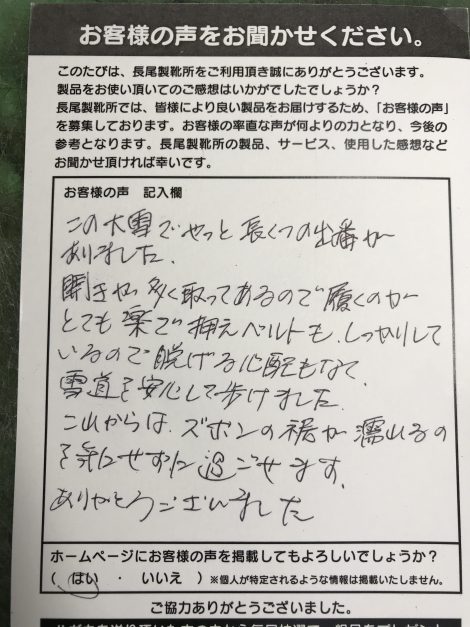 お客様の声をお聞かせください。
このたびは、長尾製靴所をご利用頂き誠にありがとうございます。
製品をお使い頂いてのご感想はいかがでしたでしょうか？
長尾製靴所では、皆様により良い製品をお届けするため、「お客様の声」
を募集しております。お客様の率直な声が何よりの力となり、今後の
参考となります。長尾製靴所の製品、サービス、使用した感想など
お聞かせ頂ければ幸いです。
お客様の声　記入欄
この大雪でやっと長くつの出番が
ありました。
開きが多く取ってあるので履くのが
とても楽で押えベルトも、しっかりして
いるので脱げる心配もなく
雪道を安心して歩けました。
これからは、ズボンの裾が濡れるの
を気にせずに過ごせます。
ありがとうございました
ホームページにお客様の声を掲載してもよろしいでしょうか？
（ はい ・ いいえ ）※個人が特定されるような情報は掲載いたしません。
ご協力ありがとうございました。